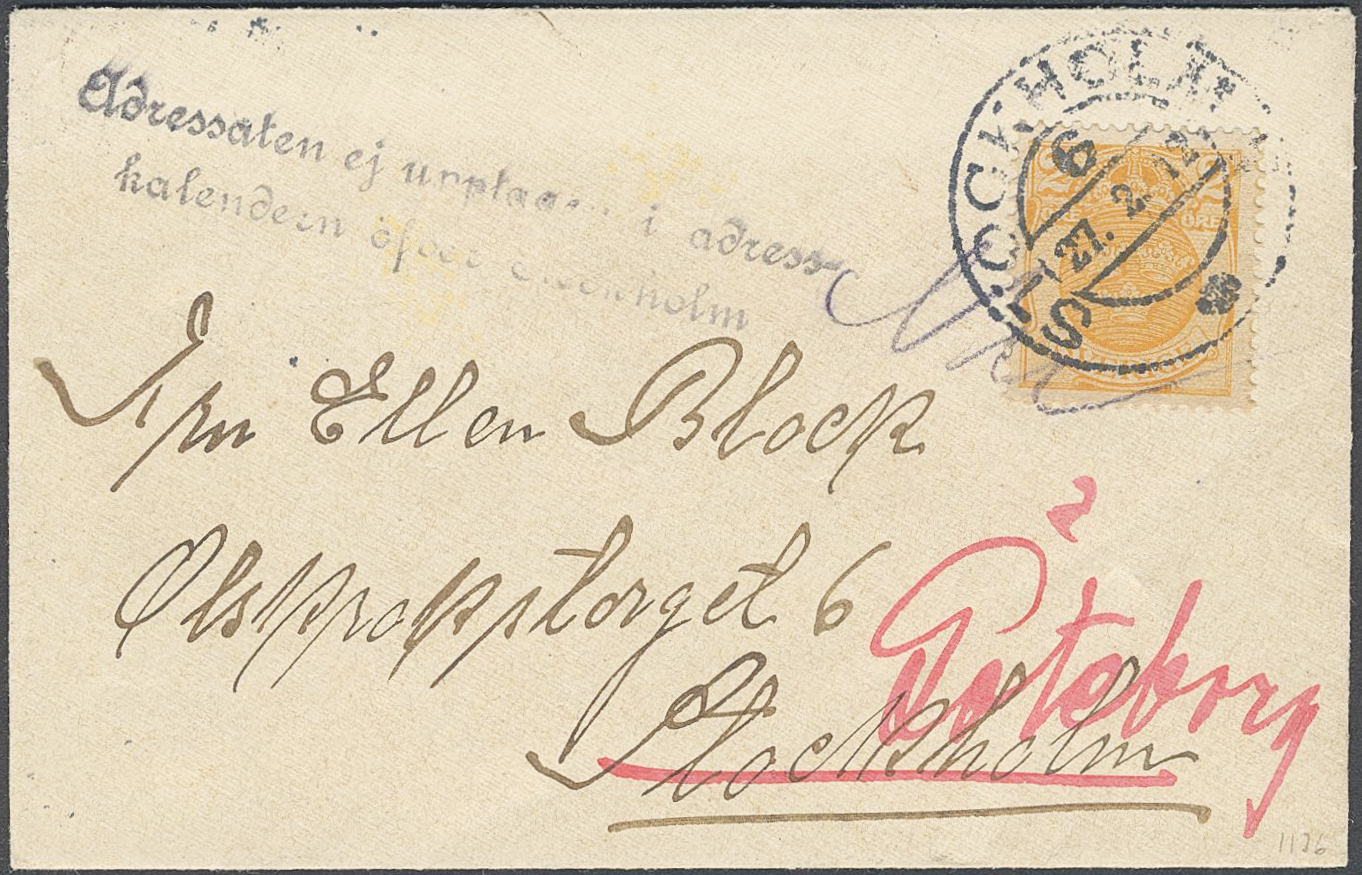 Adressaten ej upptagen i adress-
kalendern öfver Stockholm
STOCKHOLM
6
27. 2. 12
2 2
ÖRE ÖRE
Frn Ellen Block
Olskrokstorget 6
Stockholm
Göteborg
1136